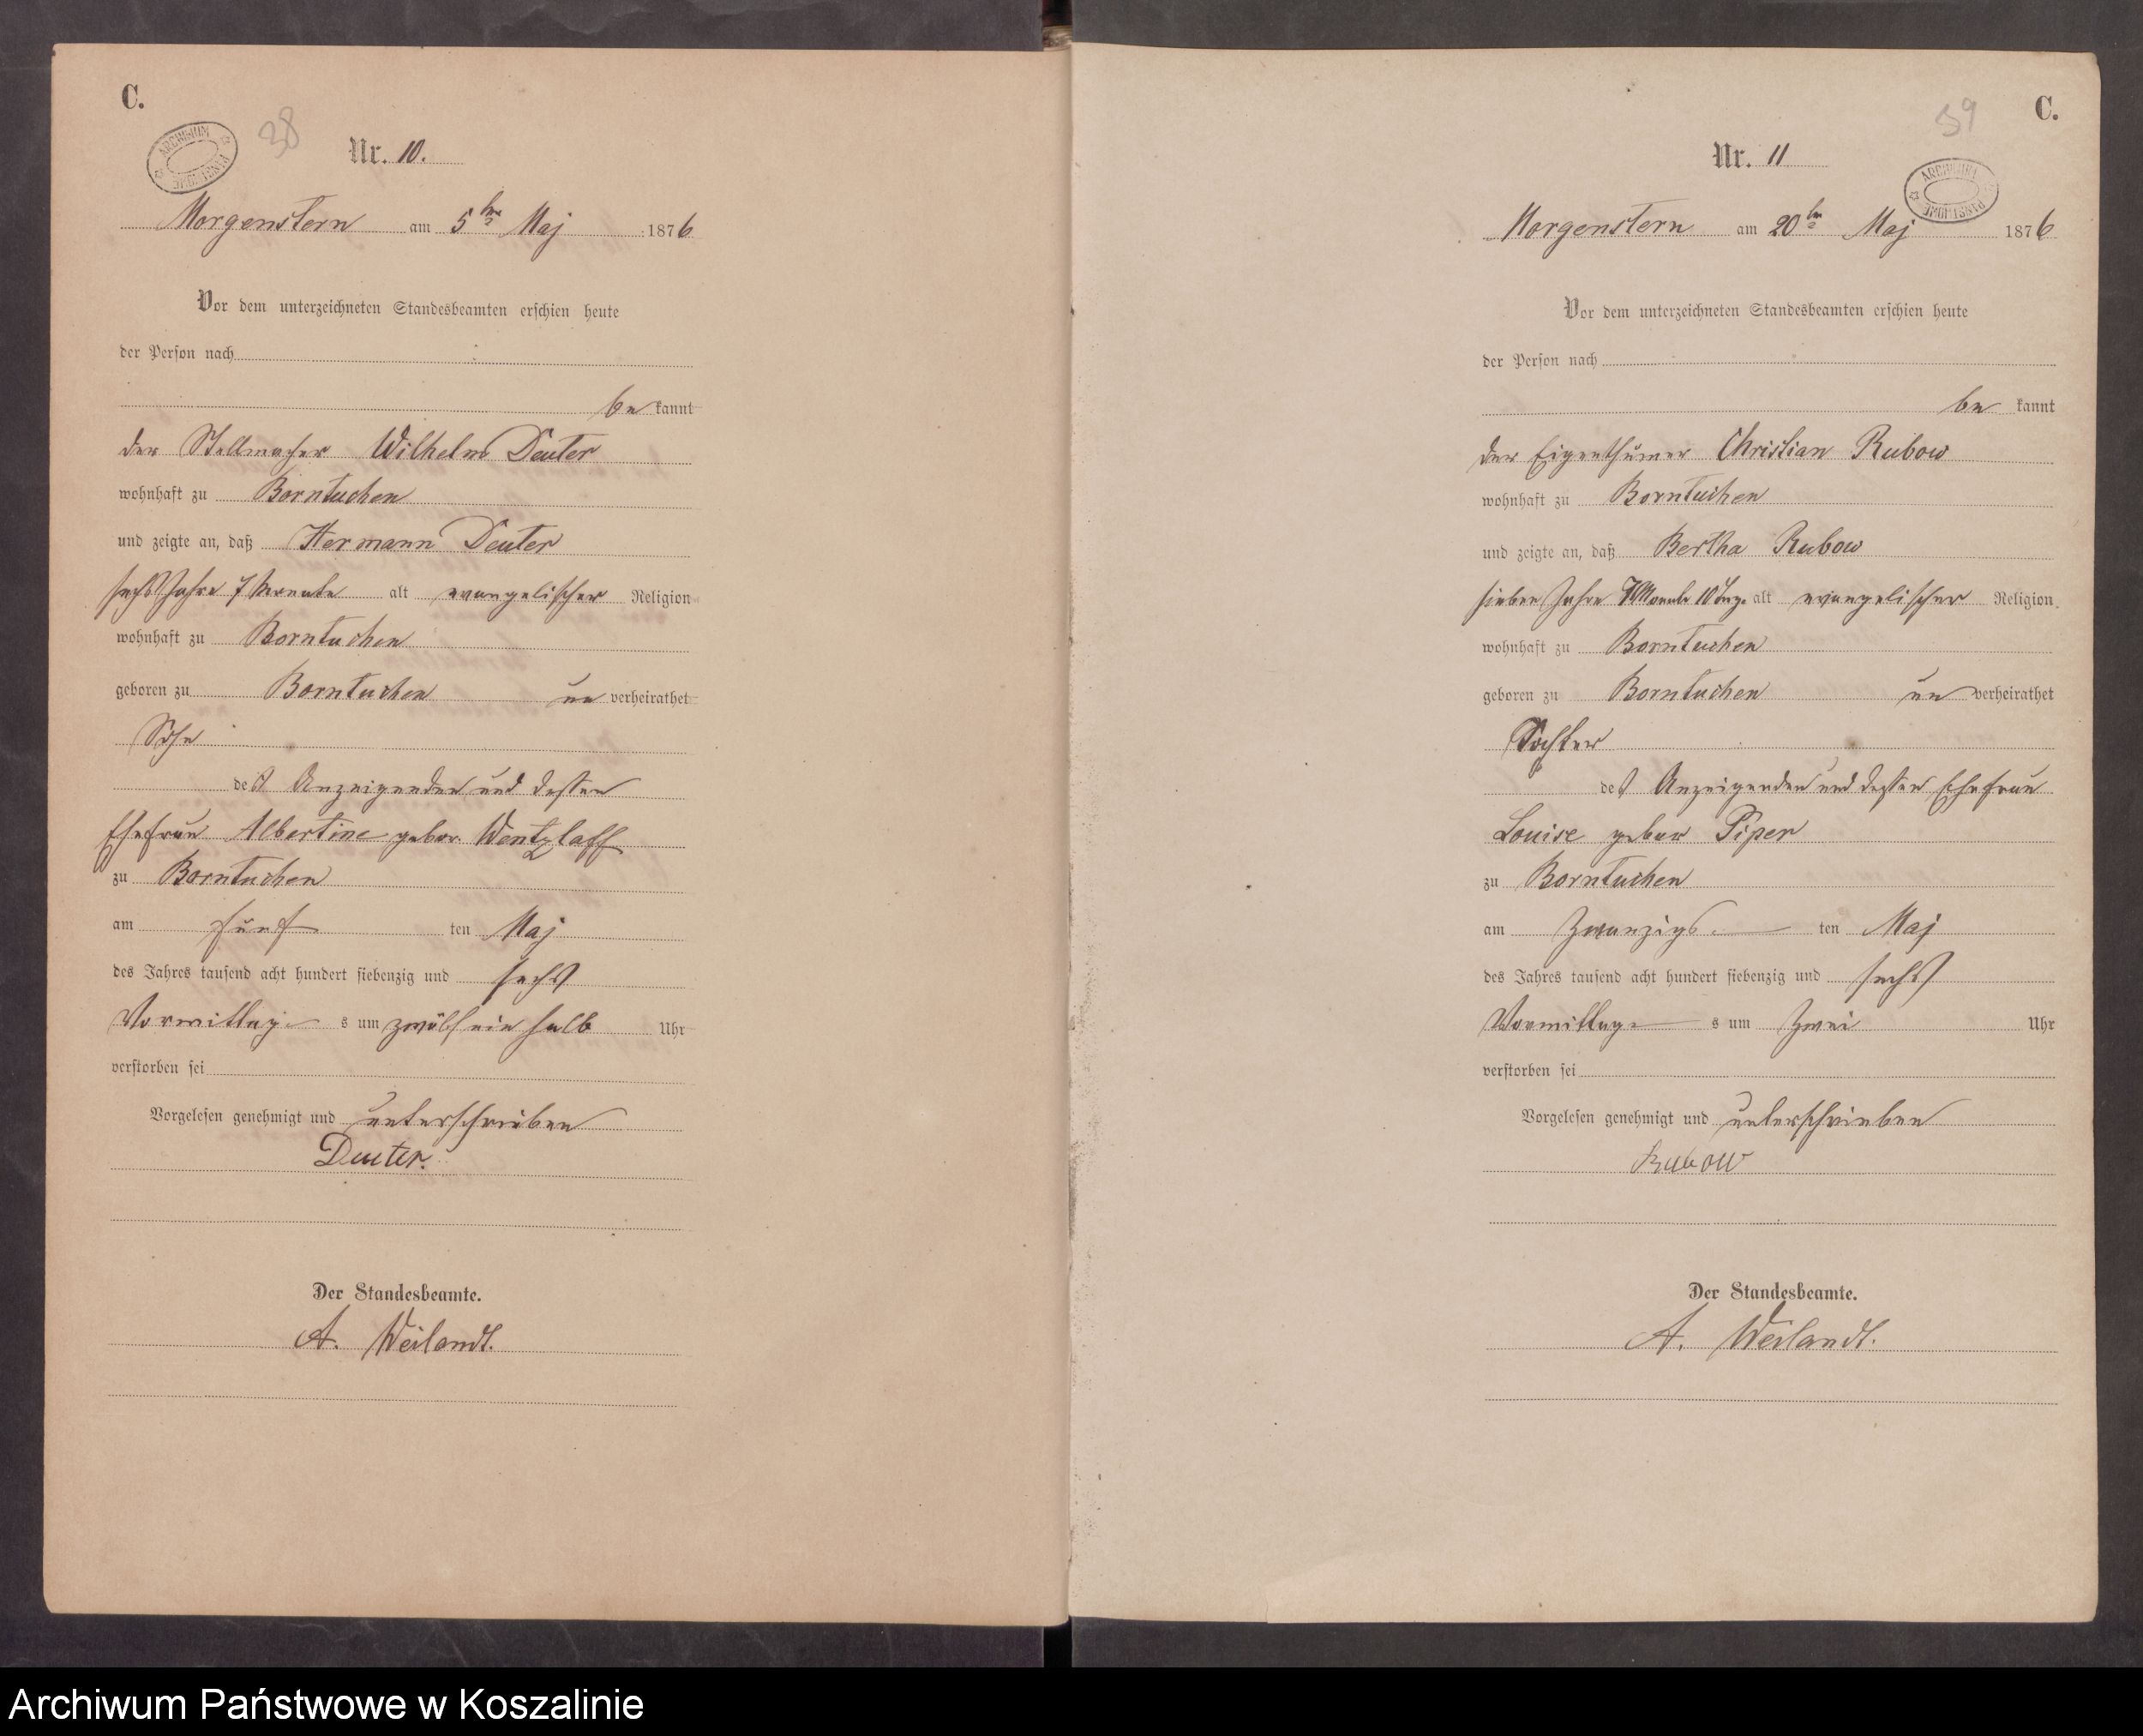 C.
ARCHIWUM PAŃSTWOWE
38
Nr. 10.
Morgenstern am 5ten Maj 1876
Vor dem unterzeichneten Standesbeamten erschien heute
der Person nach
be kannt
der Stellmacher Wilhelm Deuter
wohnhaft zu Borntuchen
und zeigte an, daß Hermann Deuter
sechs Jahre 7 Monate alt evangelischer Religion
wohnhaft zu Borntuchen
geboren zu Borntuchen un verheirathet
Sohn
des Anzeigenden und dessen
Ehefrau Albertine gebor. Wentzlaff
zu Borntuchen
am fünf ten Maj
des Jahres tausend acht hundert siebenzig und sechs
Vormittag s um zwölf ein halb Uhr
verstorben sei
Vorgelesen genehmigt und unterschrieben
Deuter.
Der Standesbeamte.
A. Weilandt.
C.
59
Nr. 11
ARCHIWUM PAŃSTWOWE
Morgenstern am 20ten Maj 1876
Vor dem unterzeichneten Standesbeamten erschien heute
der Person nach
be kannt
der Eigenthümer Christian Rubow
wohnhaft zu Borntuchen
und zeigte an, daß Bertha Rubow
sieben Jahre 7 Monate 10 Tage alt evangelischer Religion
wohnhaft zu Borntuchen
geboren zu Borntuchen un verheirathet
Tochter
des Anzeigenden und dessen Ehefrau
Louise gebor Piper
zu Borntuchen
am Zwanzigs ten Maj
des Jahres tausend acht hundert siebenzig und sechs
Vormittag s um Zwei Uhr
verstorben sei
Vorgelesen genehmigt und unterschrieben
Rubow
Der Standesbeamte.
A. Weilandt.
Archiwum Państwowe w Koszalinie